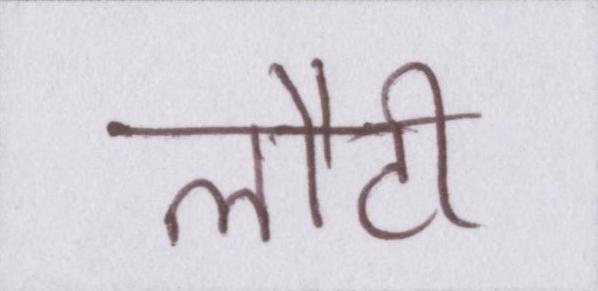 लौटी